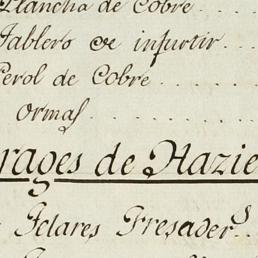 Plancha de Cobre ...
Tablero de infurtir ...
Perol de Cobre ...
ormas ...
rages de Hazie
Telares Fresaders ..